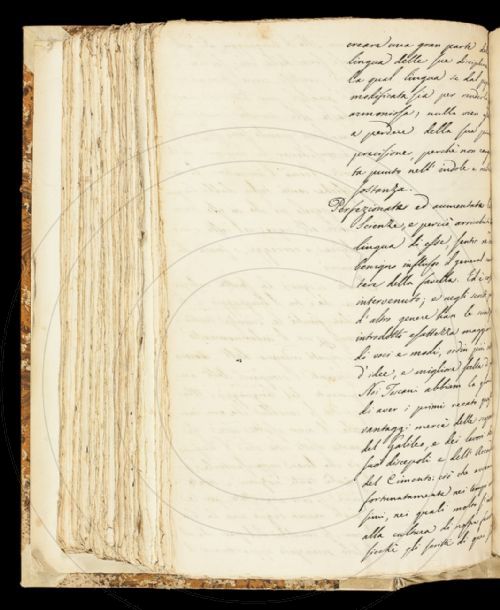 creare una gran parte del
lingua delle sue discipline
la qual lingua se dal
modificata sia per render
armoniosa, nulla
a perdere della sua
precisione, perchè non
ta punto nell' indole e
sostanza.
Perfezionate ed aumentate le
Scienze, e perciò arricchita
lingua di esse, sentì
benigno influsso il general
tere della favella. Ed è
intervenuto; e negli
d' altro genere han le
introdotto esattezza maggior
di voci e modi, ordin più
d' idee, e miglior
Noi Toscani abbiam la
di aver i primi recato
vantaggi mercè delle
del Galileo, e dei lavori de
suoi discepoli e dell' Accad
del Cimento: ciò che
fortunatamente nei tempi
simi, nei quali molto
alla cultura di
sicchè gli scritti di